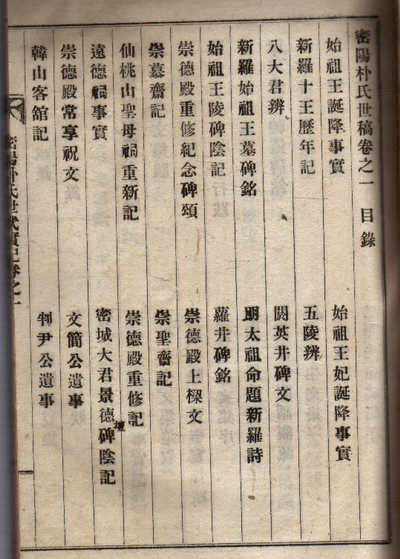 密陽朴氏世稿卷之一 目錄
始祖王誕降事實 始祖王妃誕降事實
新羅十王歷年記 五陵辨
八大君辨 閼英井碑文
新羅始祖王墓碑銘 朙太祖命題新羅詩
始祖王陵碑陰記 蘿井碑銘
崇德殿重修紀念碑頌 崇德殿上樑文
崇慕齋記 崇聖齋記
仙桃山聖母祠重新記 崇德殿重修記
遠德祠事實 密城大君景德壇碑陰記
崇德殿常享祝文 文簡公遺事
韓山客館記 判尹公遺事